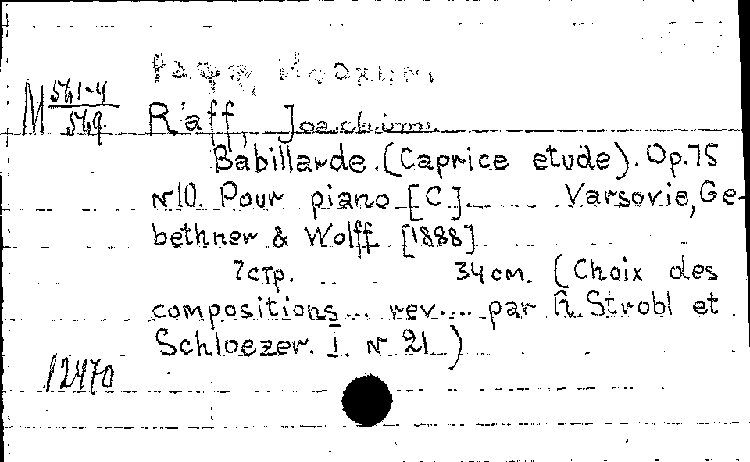 Рафф, Иоахим
М 561-4
569
Raff, Joachim.
Babillarde. (Caprice etude). Op.75
№10. Pour piano [C.] Varsovie, Ge-
bethner & Wolff [1888]
7стр. 34см. (Choix des
compositions... rev.... par R. Strobl et
Schloezer. I. № 21.)
12470